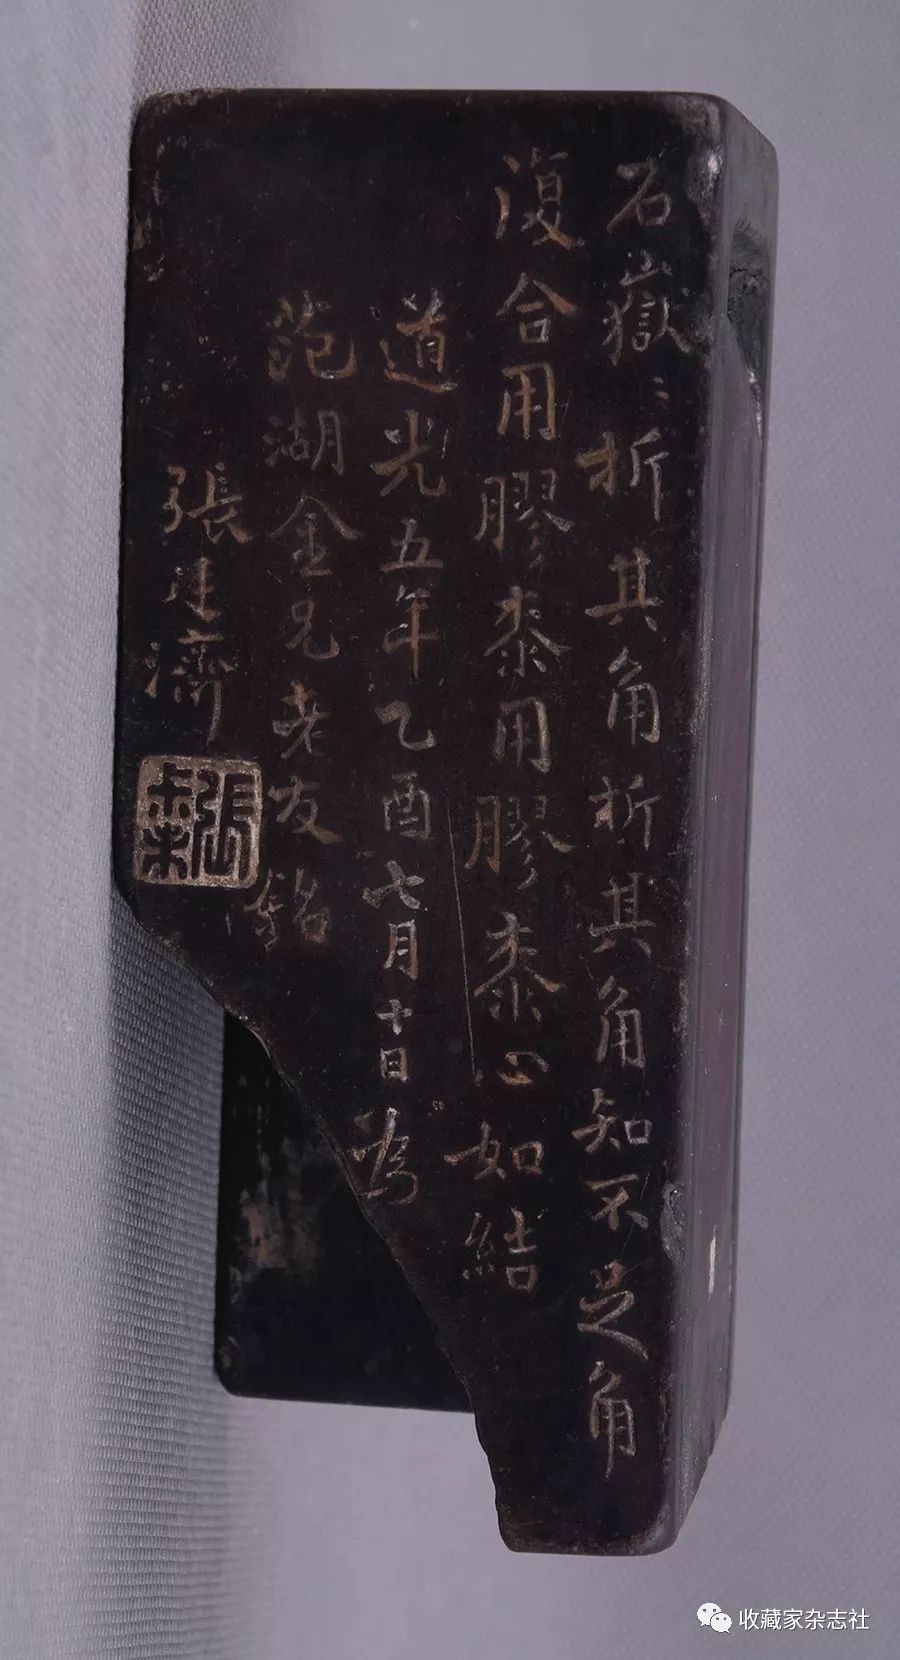 石嶽〻折其角折其角知不足角
復合用膠桼用膠桼心如結
道光五年乙酉七月十日為
范湖金兄老友銘
張廷濟
張叔未
收藏家杂志社